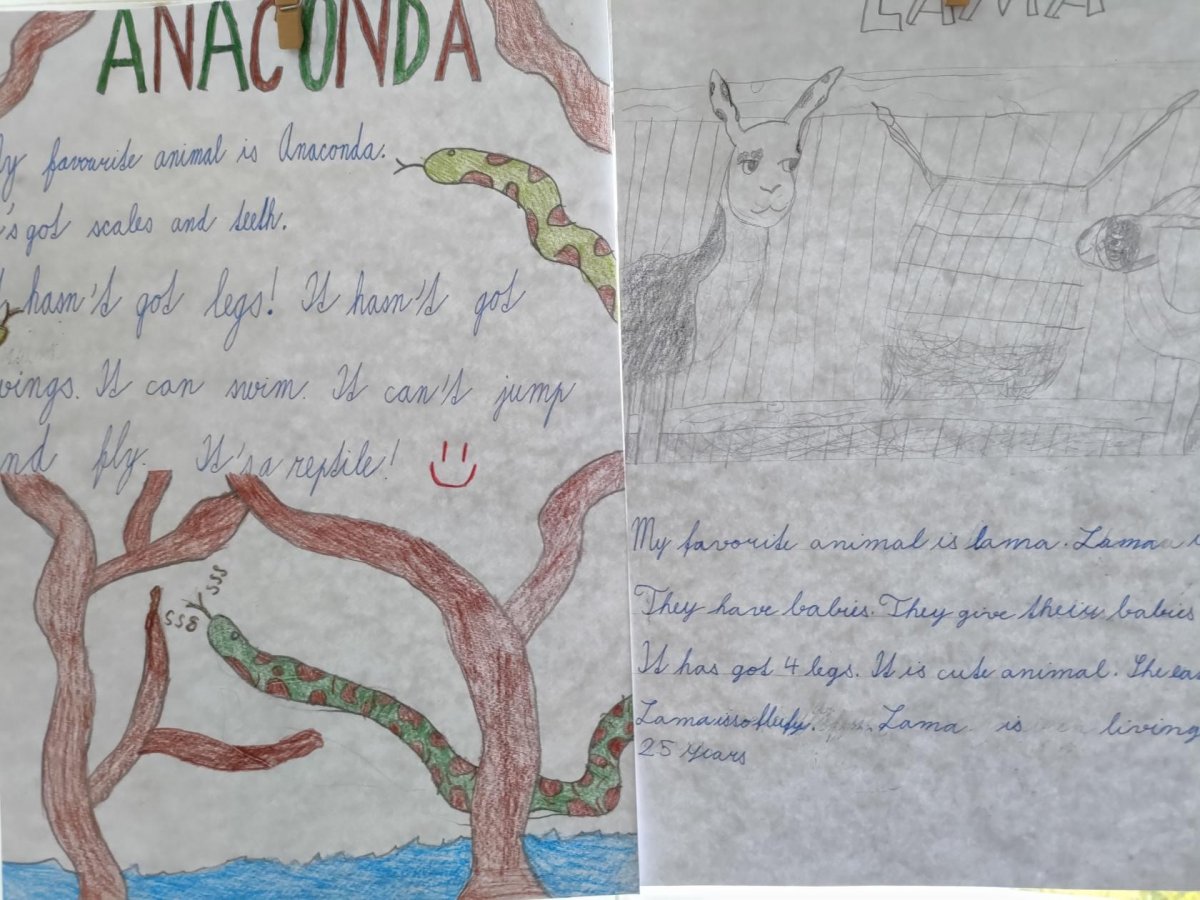 ANACONDA
y favourite animal is Anaconda.
's got scales and teeth.
hasn't got legs! It hasn't got
wings. It can swim. It can't jump
nd fly. It's a reptile!
SSS
SSS
LAMA
My favorite animal is lama. Lama
They have babies. They give their babies
It has got 4 legs. It is cute animal. She
Lama is so flufy. Lama is living
25 years